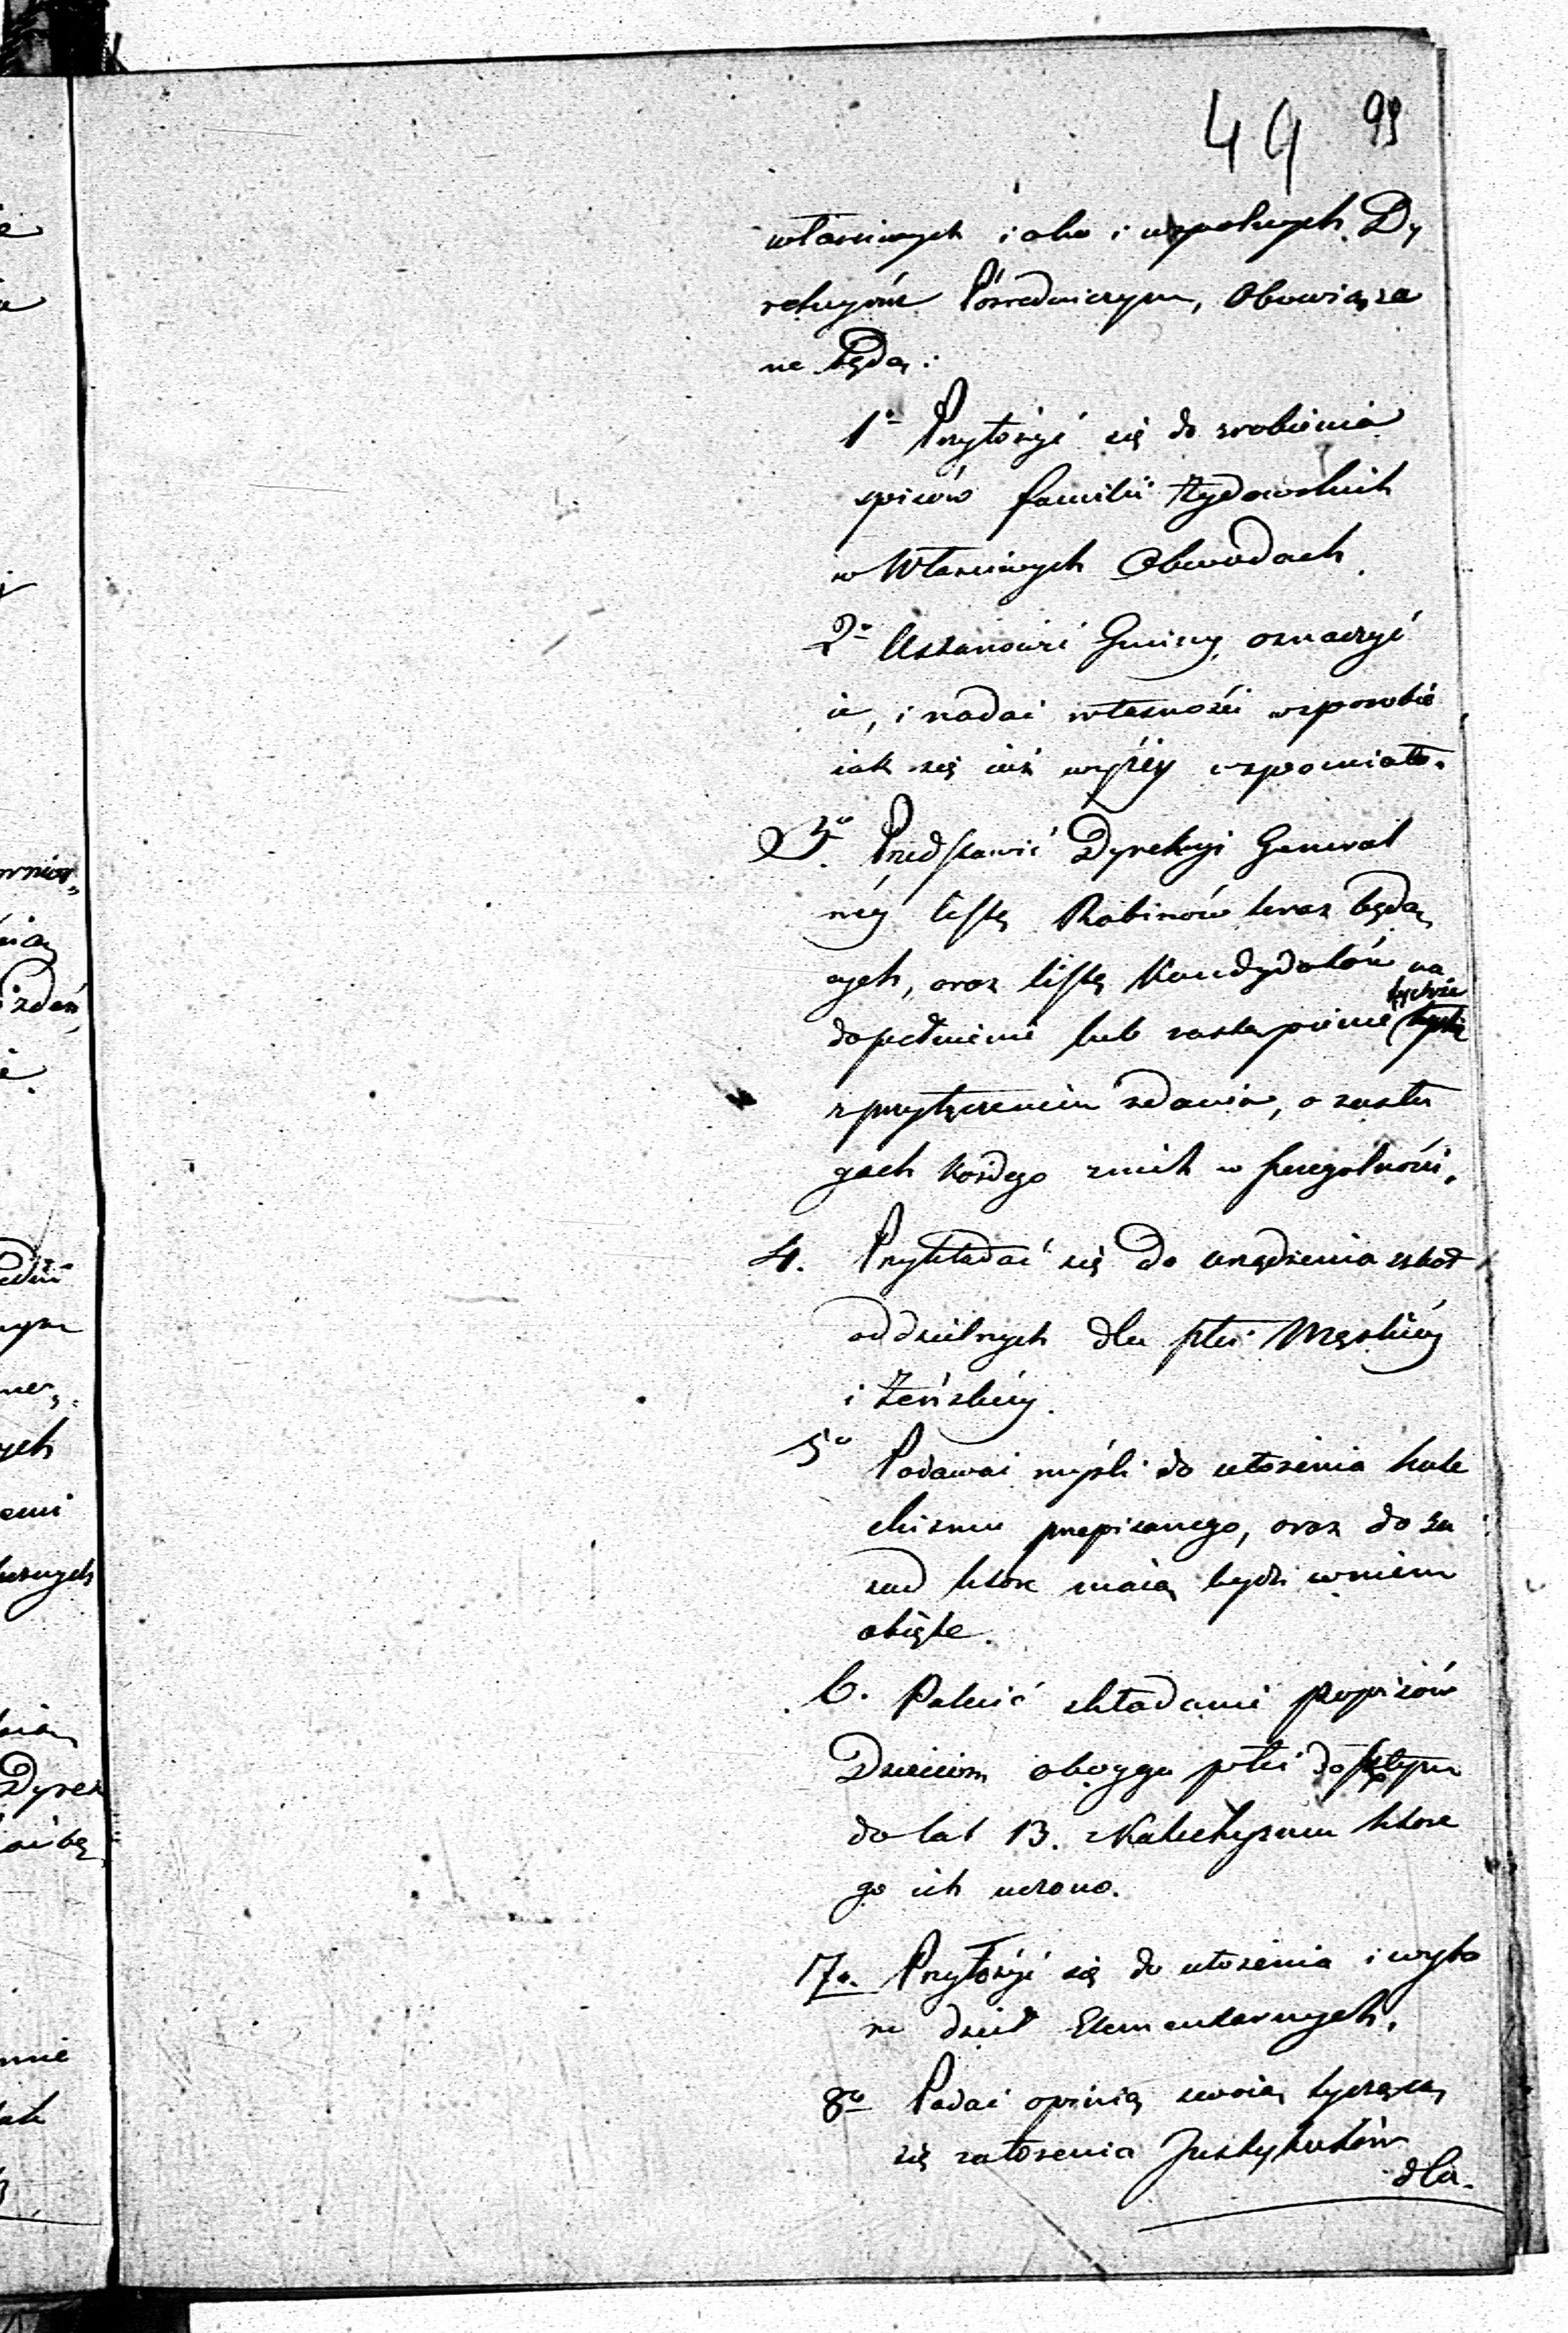 44 99
własciwych iako i wspolnych Dy
rekcyów Pośredniczym, Obowiąza
ne będą:
1o Przyłożyć się do zrobienia
spisów familii Żydowskich
w Własciwych Obwodach.
2o Ustanowić Gminy, oznaczyć
ie, i nadać własności wsposobie
iak się iuż wyżéy wspomniało.
3o. Przedstawić Dyrekcyi General
néy listę Rabinów teraz będą
cych, oraz listę Kandydatów na
dopełnienie lub zastąpienie tychże
z przyłączeniem zdania, o zasłu
gach każdego znich w szczegolności.
4. Przykładać się do urządzenia szkoł
oddzielnych dla płci Męskiéy
i Żeńskiéy.
5o Podawać myśli do ułożenia kate
chizmu przepisanego, oraz do za
sad ktore maią bydź wniem
obięte.
6. Polecić składanie popisów
Dzieciom oboyga płci doszłym
do lat 13. z Katechyzmu ktore
go ich uczono.
7o. Przyłożyć się do ułożenia i wybo
ru dzieł Elementarnych.
8o Podać opinią swoią tyczącą
się założenia Instytutów
dla.